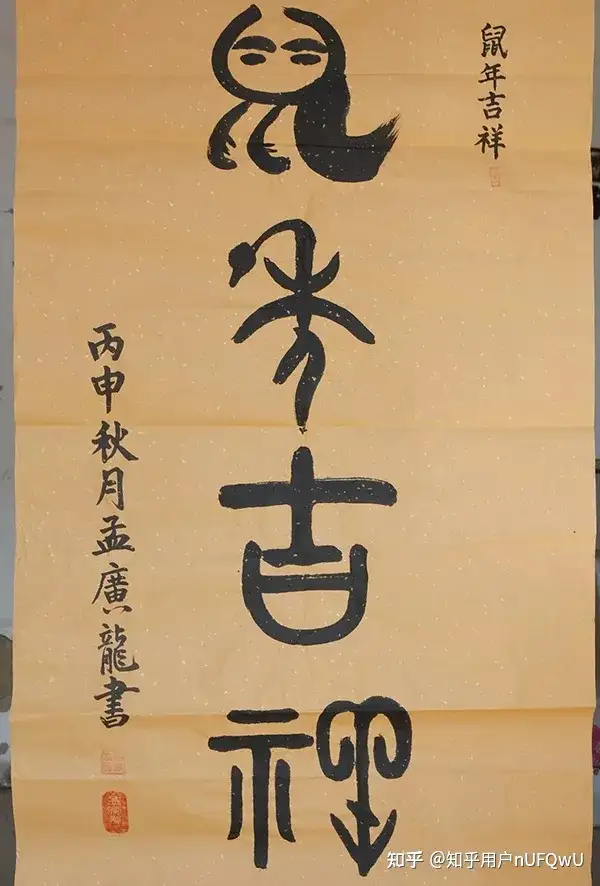 鼠年吉祥
鼠年吉祥
丙申秋月孟廣龍書
知乎 @知乎用户nUFQwU